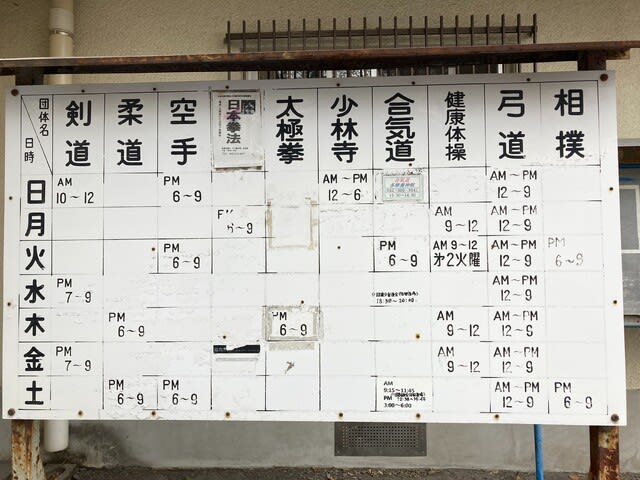 団体名
日時
剣道 柔道 空手 日本拳法 太極拳 少林寺 合気道 健康体操 弓道 相撲
日 AM 10～12 PM 6～9 AM～PM 12～6 AM～PM 12～9
月 6～9 AM 9～12 AM～PM 12～9
火 PM 6～9 PM 6～9 AM 9～12 才2火曜 AM～PM 12～9 PM 6～9
水 PM 7～9 18:30～20:30 AM～PM 12～9
木 PM 6～9 PM 6～9 AM 9～12 AM～PM 12～9
金 PM 7～9 AM 9～12 AM～PM 12～9
土 PM 6～9 PM 6～9 AM 9:15～11:45 PM 3:00～6:00 AM～PM 12～9 PM 6～9